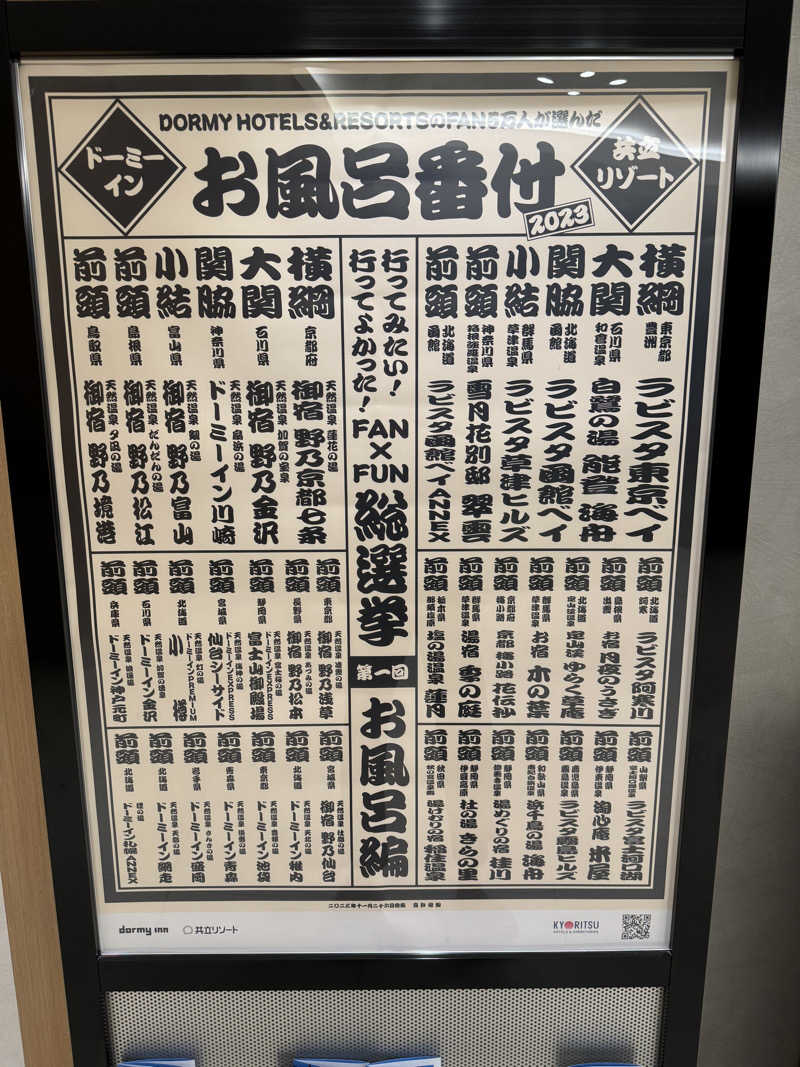 DORMY HOTELS&RESORTSのFAN5万人が選んだ
ドーミーイン
お風呂番付
2023
共立リゾート
横綱 東京都 豊洲 ラビスタ東京ベイ
大関 石川県 和倉温泉 白鷺の湯 能登 海舟
関脇 北海道 函館 ラビスタ函館ベイ
小結 群馬県 草津温泉 ラビスタ草津ヒルズ
前頭 神奈川県 箱根強羅温泉 雪月花別邸 翠雲
前頭 北海道 函館 ラビスタ函館ベイANNEX
前頭 北海道 阿寒 ラビスタ阿寒川
前頭 島根県 出雲 お宿 月夜のうさぎ
前頭 北海道 定山渓温泉 定山渓 ゆらく草庵
前頭 群馬県 草津温泉 お宿 木の葉
前頭 京都府 梅小路 京都 梅小路 花伝抄
前頭 群馬県 草津温泉 湯宿 季の庭
前頭 栃木県 那須塩原 塩の湯温泉 蓮月
前頭 山梨県 ラビスタ富士河口湖
前頭 静岡県 伊東温泉 淘心庵 米屋
前頭 鹿児島県 霧島温泉 ラビスタ霧島ヒルズ
前頭 和歌山県 浜千鳥の湯 海舟
前頭 静岡県 修善寺温泉 湯めぐりの宿 桂川
前頭 静岡県 伊豆高原 杜の湯 きらの里
前頭 秋田県 湯けむりの宿 稲住温泉
行ってみたい!
行ってよかった!
FAN×FUN
総選挙
第一回
お風呂編
横綱 京都府 天然温泉 蓮花の湯 御宿 野乃京都七条
大関 石川県 天然温泉 加賀の宝泉 御宿 野乃金沢
関脇 神奈川県 天然温泉 扇浜の湯 ドーミーイン川崎
小結 富山県 天然温泉 剱の湯 御宿 野乃富山
前頭 島根県 天然温泉 だんだんの湯 御宿 野乃松江
前頭 鳥取県 天然温泉 夕凪の湯 御宿 野乃境港
前頭 東京都 天然温泉 凌雲の湯 御宿 野乃浅草
前頭 長野県 天然温泉 あづみの湯 御宿 野乃松本
前頭 静岡県 天然温泉 富士桜の湯 ドーミーインEXPRESS 富士山御殿場
前頭 宮城県 天然温泉 海神の湯 ドーミーインEXPRESS 仙台シーサイド
前頭 北海道 天然温泉 灯の湯 ドーミーインPREMIUM 小樽
前頭 石川県 天然温泉 加賀の湧泉 ドーミーイン金沢
前頭 兵庫県 天然温泉 浪漫湯 ドーミーイン神戸元町
前頭 宮城県 天然温泉 杜都の湯 御宿 野乃仙台
前頭 北海道 天然温泉 天北の湯 ドーミーイン稚内
前頭 東京都 天然温泉 豊穣の湯 ドーミーイン池袋
前頭 青森県 天然温泉 ドーミーイン青森
前頭 岩手県 天然温泉 さんさの湯 ドーミーイン盛岡
前頭 北海道 天然温泉 天都の湯 ドーミーイン網走
前頭 北海道 狸の湯 ドーミーイン札幌ANNEX
dormy inn
共立リゾート
KYORITSU
HOTELS & RESORTS